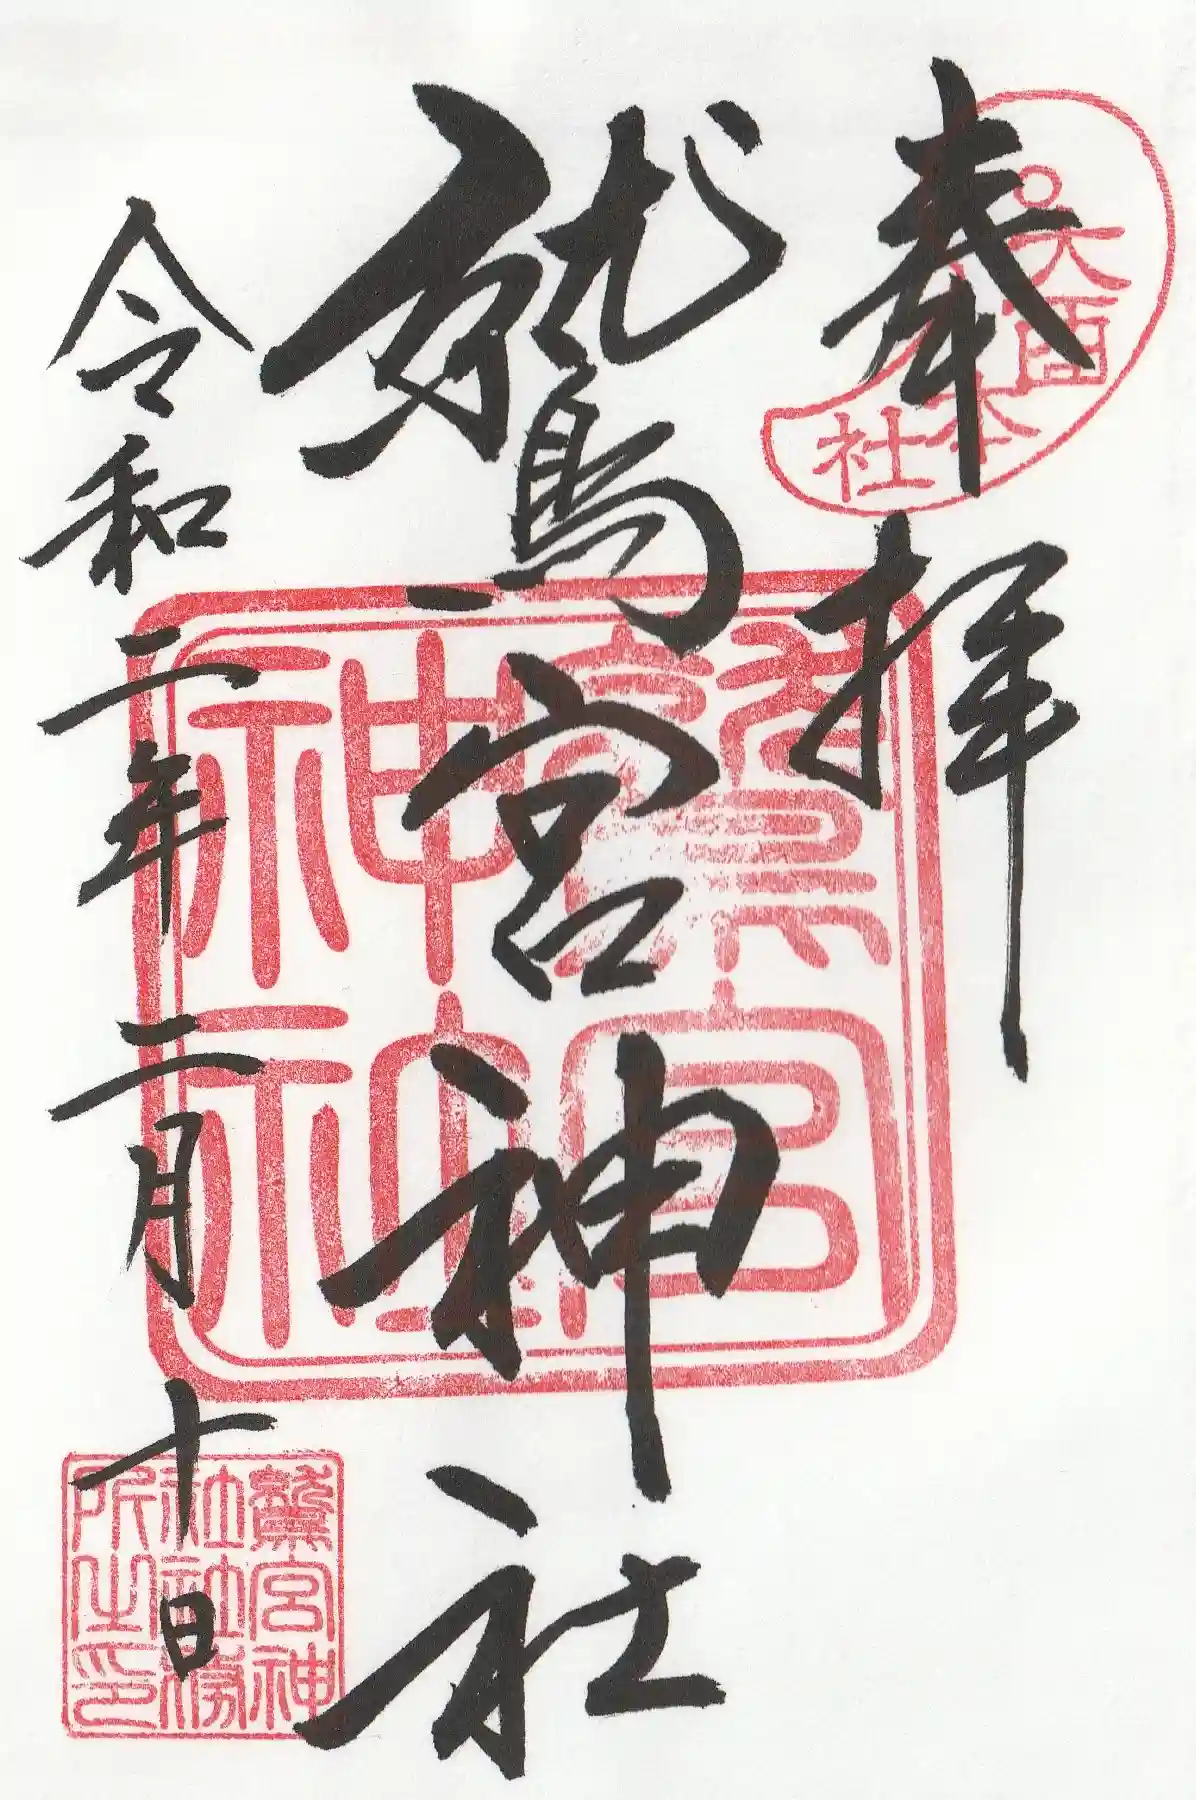 奉拝
大酉本社
鷲宮神社
鷲宮神社
令和二年二月十日
鷲宮神
社社務
所之印